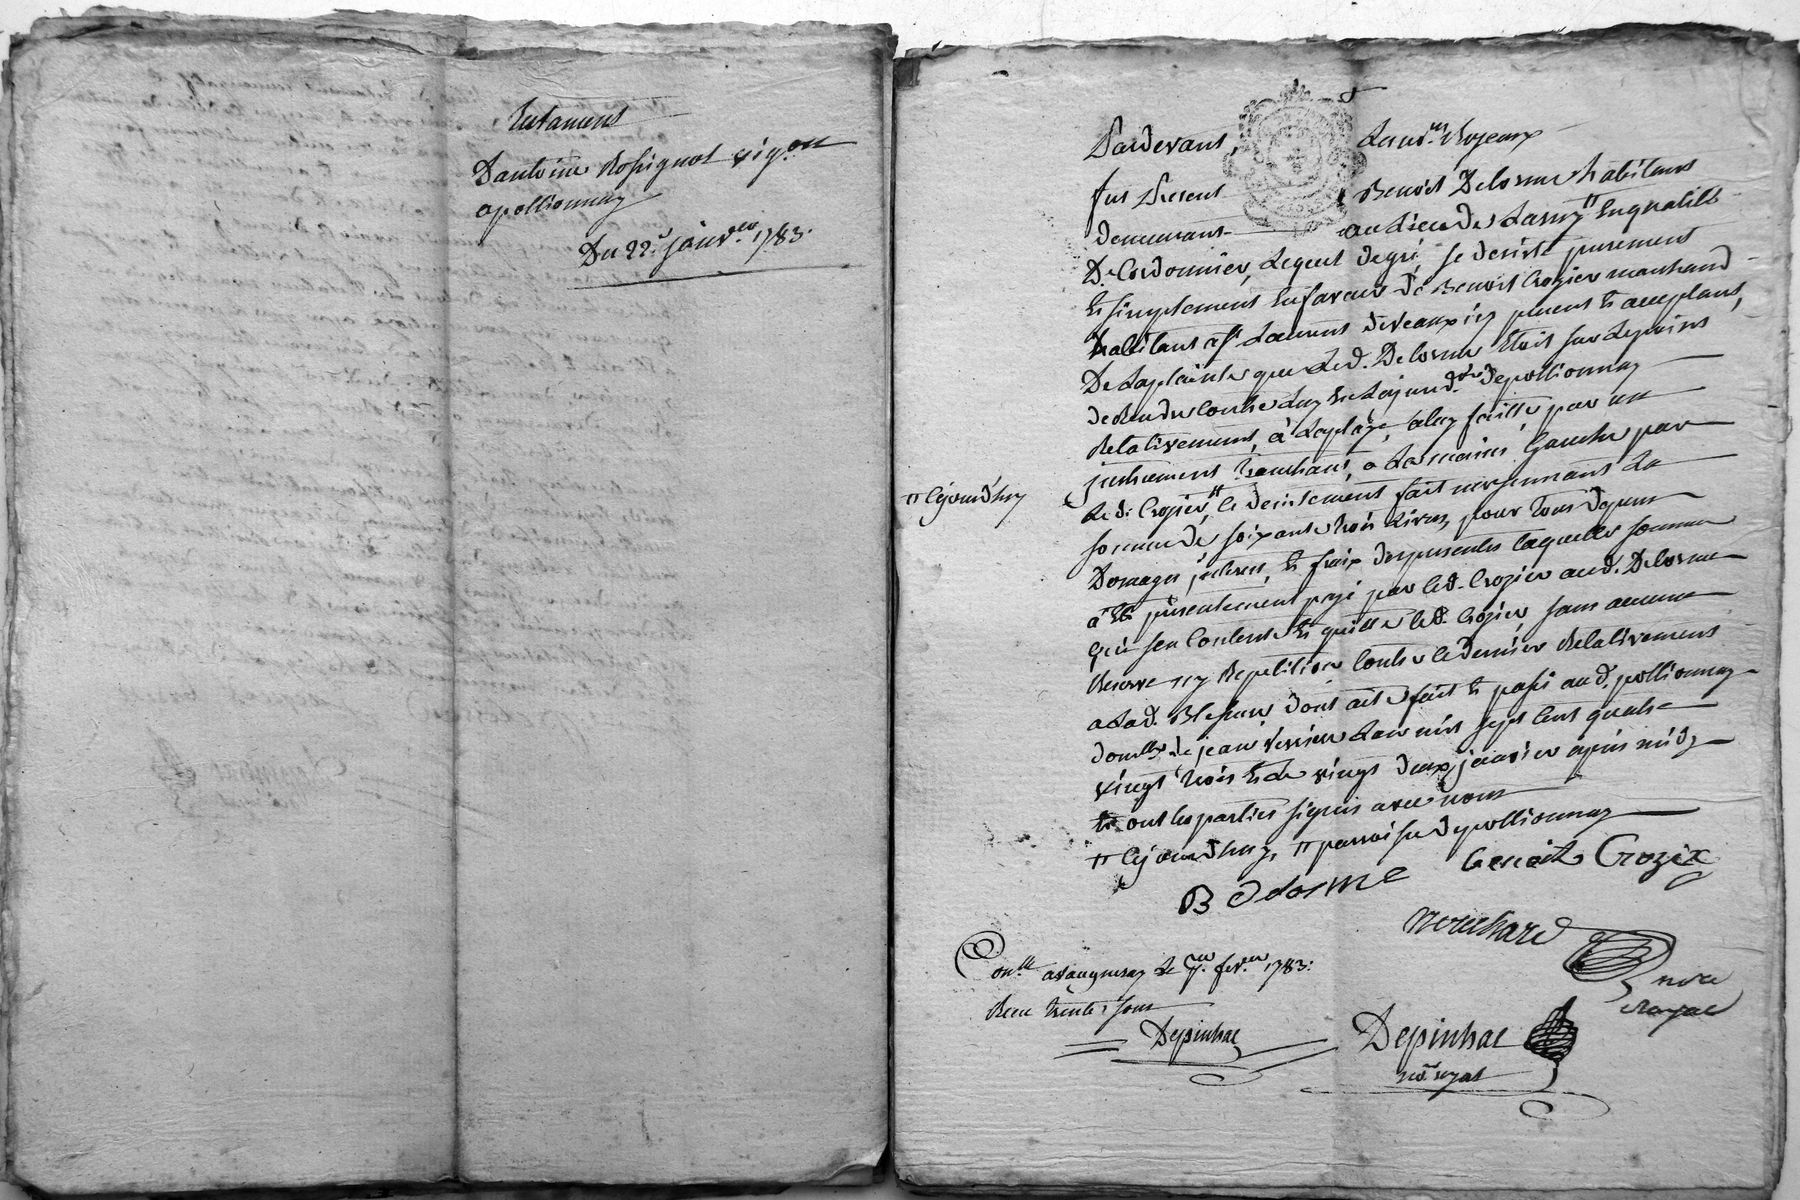 testament
Dantoine Rossignol vig.on
apollionnay
Du 22.e janv.er 1783.
Pardevant, Les no.res Royaux
fut Present Benoit Delorme habitant
demeurant au lieu de Larny
De Cordonnier, Lequel de gré, se desiste purement
et simplement en faveur de Benoit Crozier marchand
habitant st Laurent de veaux icy present et acceptant,
De La plainte que Led. Delorme Etoit sur Le point
de Rendre Contre Luy En La jurid.on de pollionnay
Relativement, à La playe, a luy faitte par un
instrument tranchant, a La main Gauche par
Le d. Crozier, " le desistement fait moyennant La
" Cejourd'huy
somme de soixante trois Livres, pour tous depens
Domages interets, et fraix des presentes laquelle somme
a été presentement payé par led. Crozier aud. Delorme
qui s'en Contente et quitte led. Crozier sans aucune
Reserve ny Repetition Contre Ce dernier Relativement
a Lad. Blessure, dont acte fait et passé aud. pollionnay
domille de jean Lan mil sept Cent quatre
vingt trois et Le vingt deux janvier après midy
et ont les parties signés avec nous
" Cejourd'huy, " parroisse de pollionnay
B Delorme benoit Crozier
nore
Royal
Con.llé a vaugneray Le 7.me fev.er 1783.
Receu trente s. sous
Depinhac
Depinhac
no.re royal